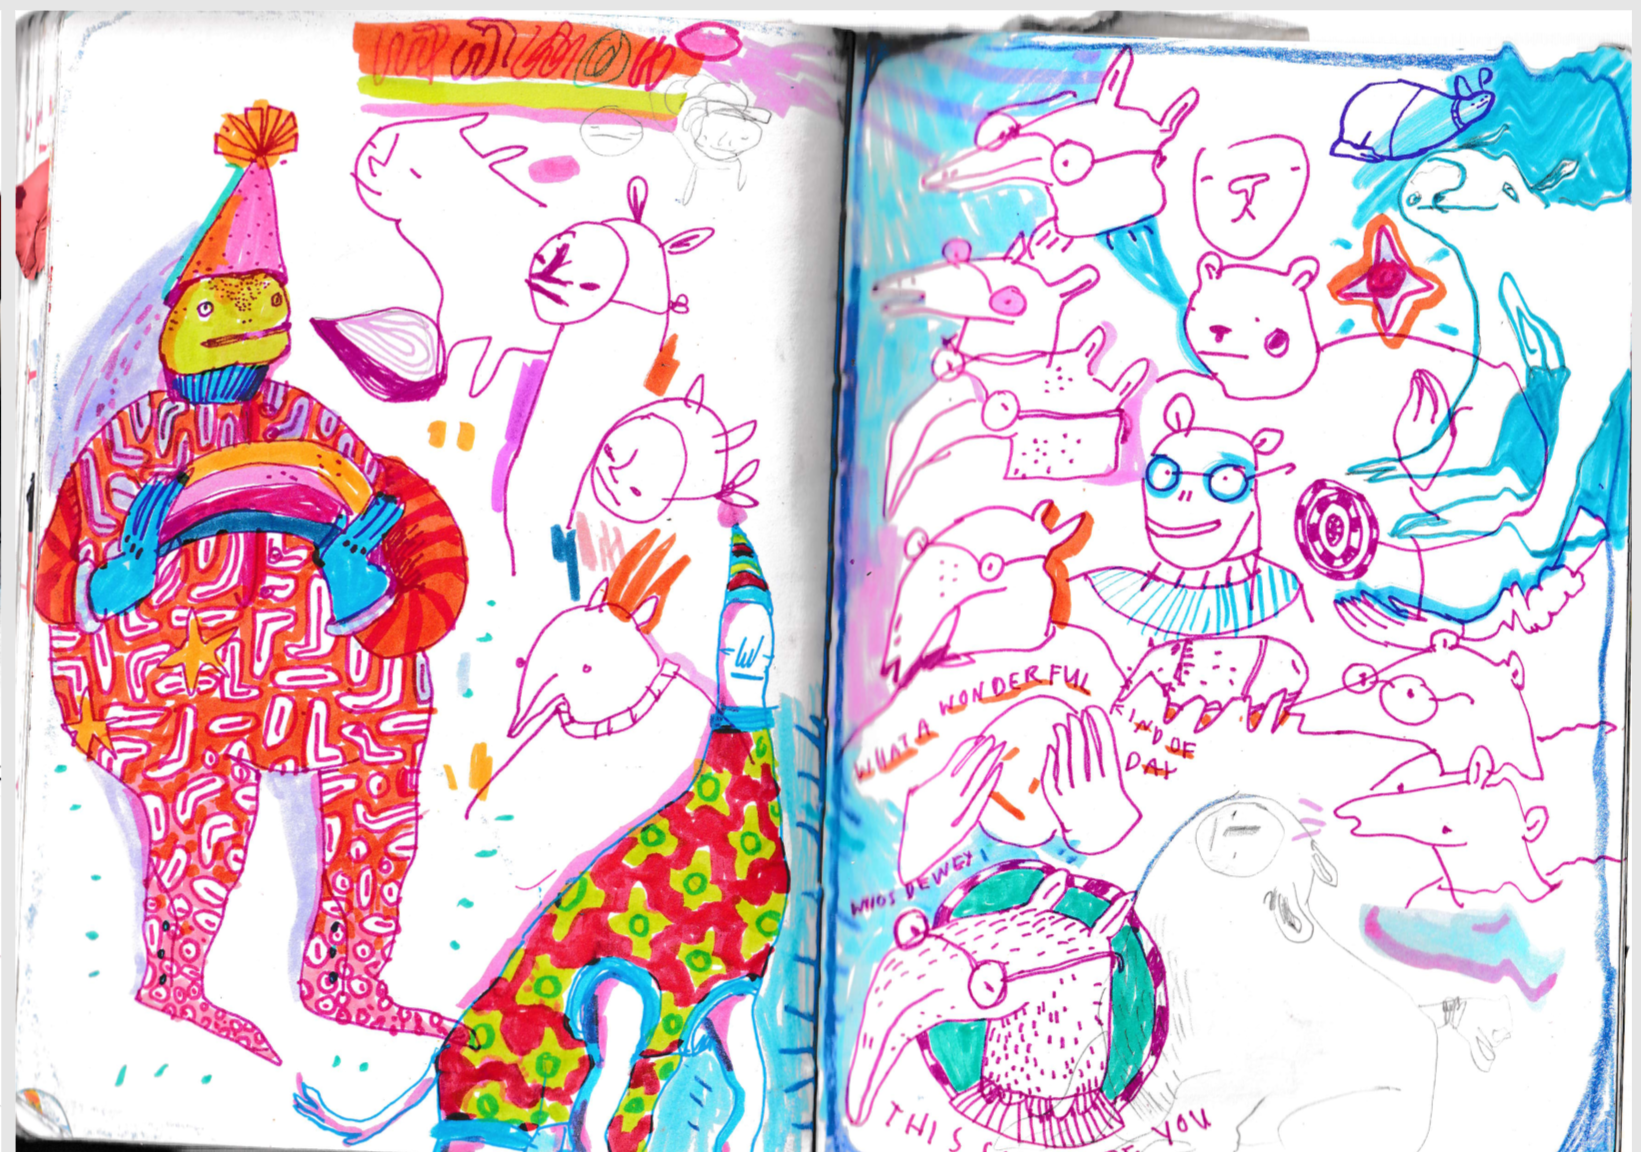 WHAT A WONDERFUL
KIND OF
DAY
WHOS DEWEY!
THIS
YOU